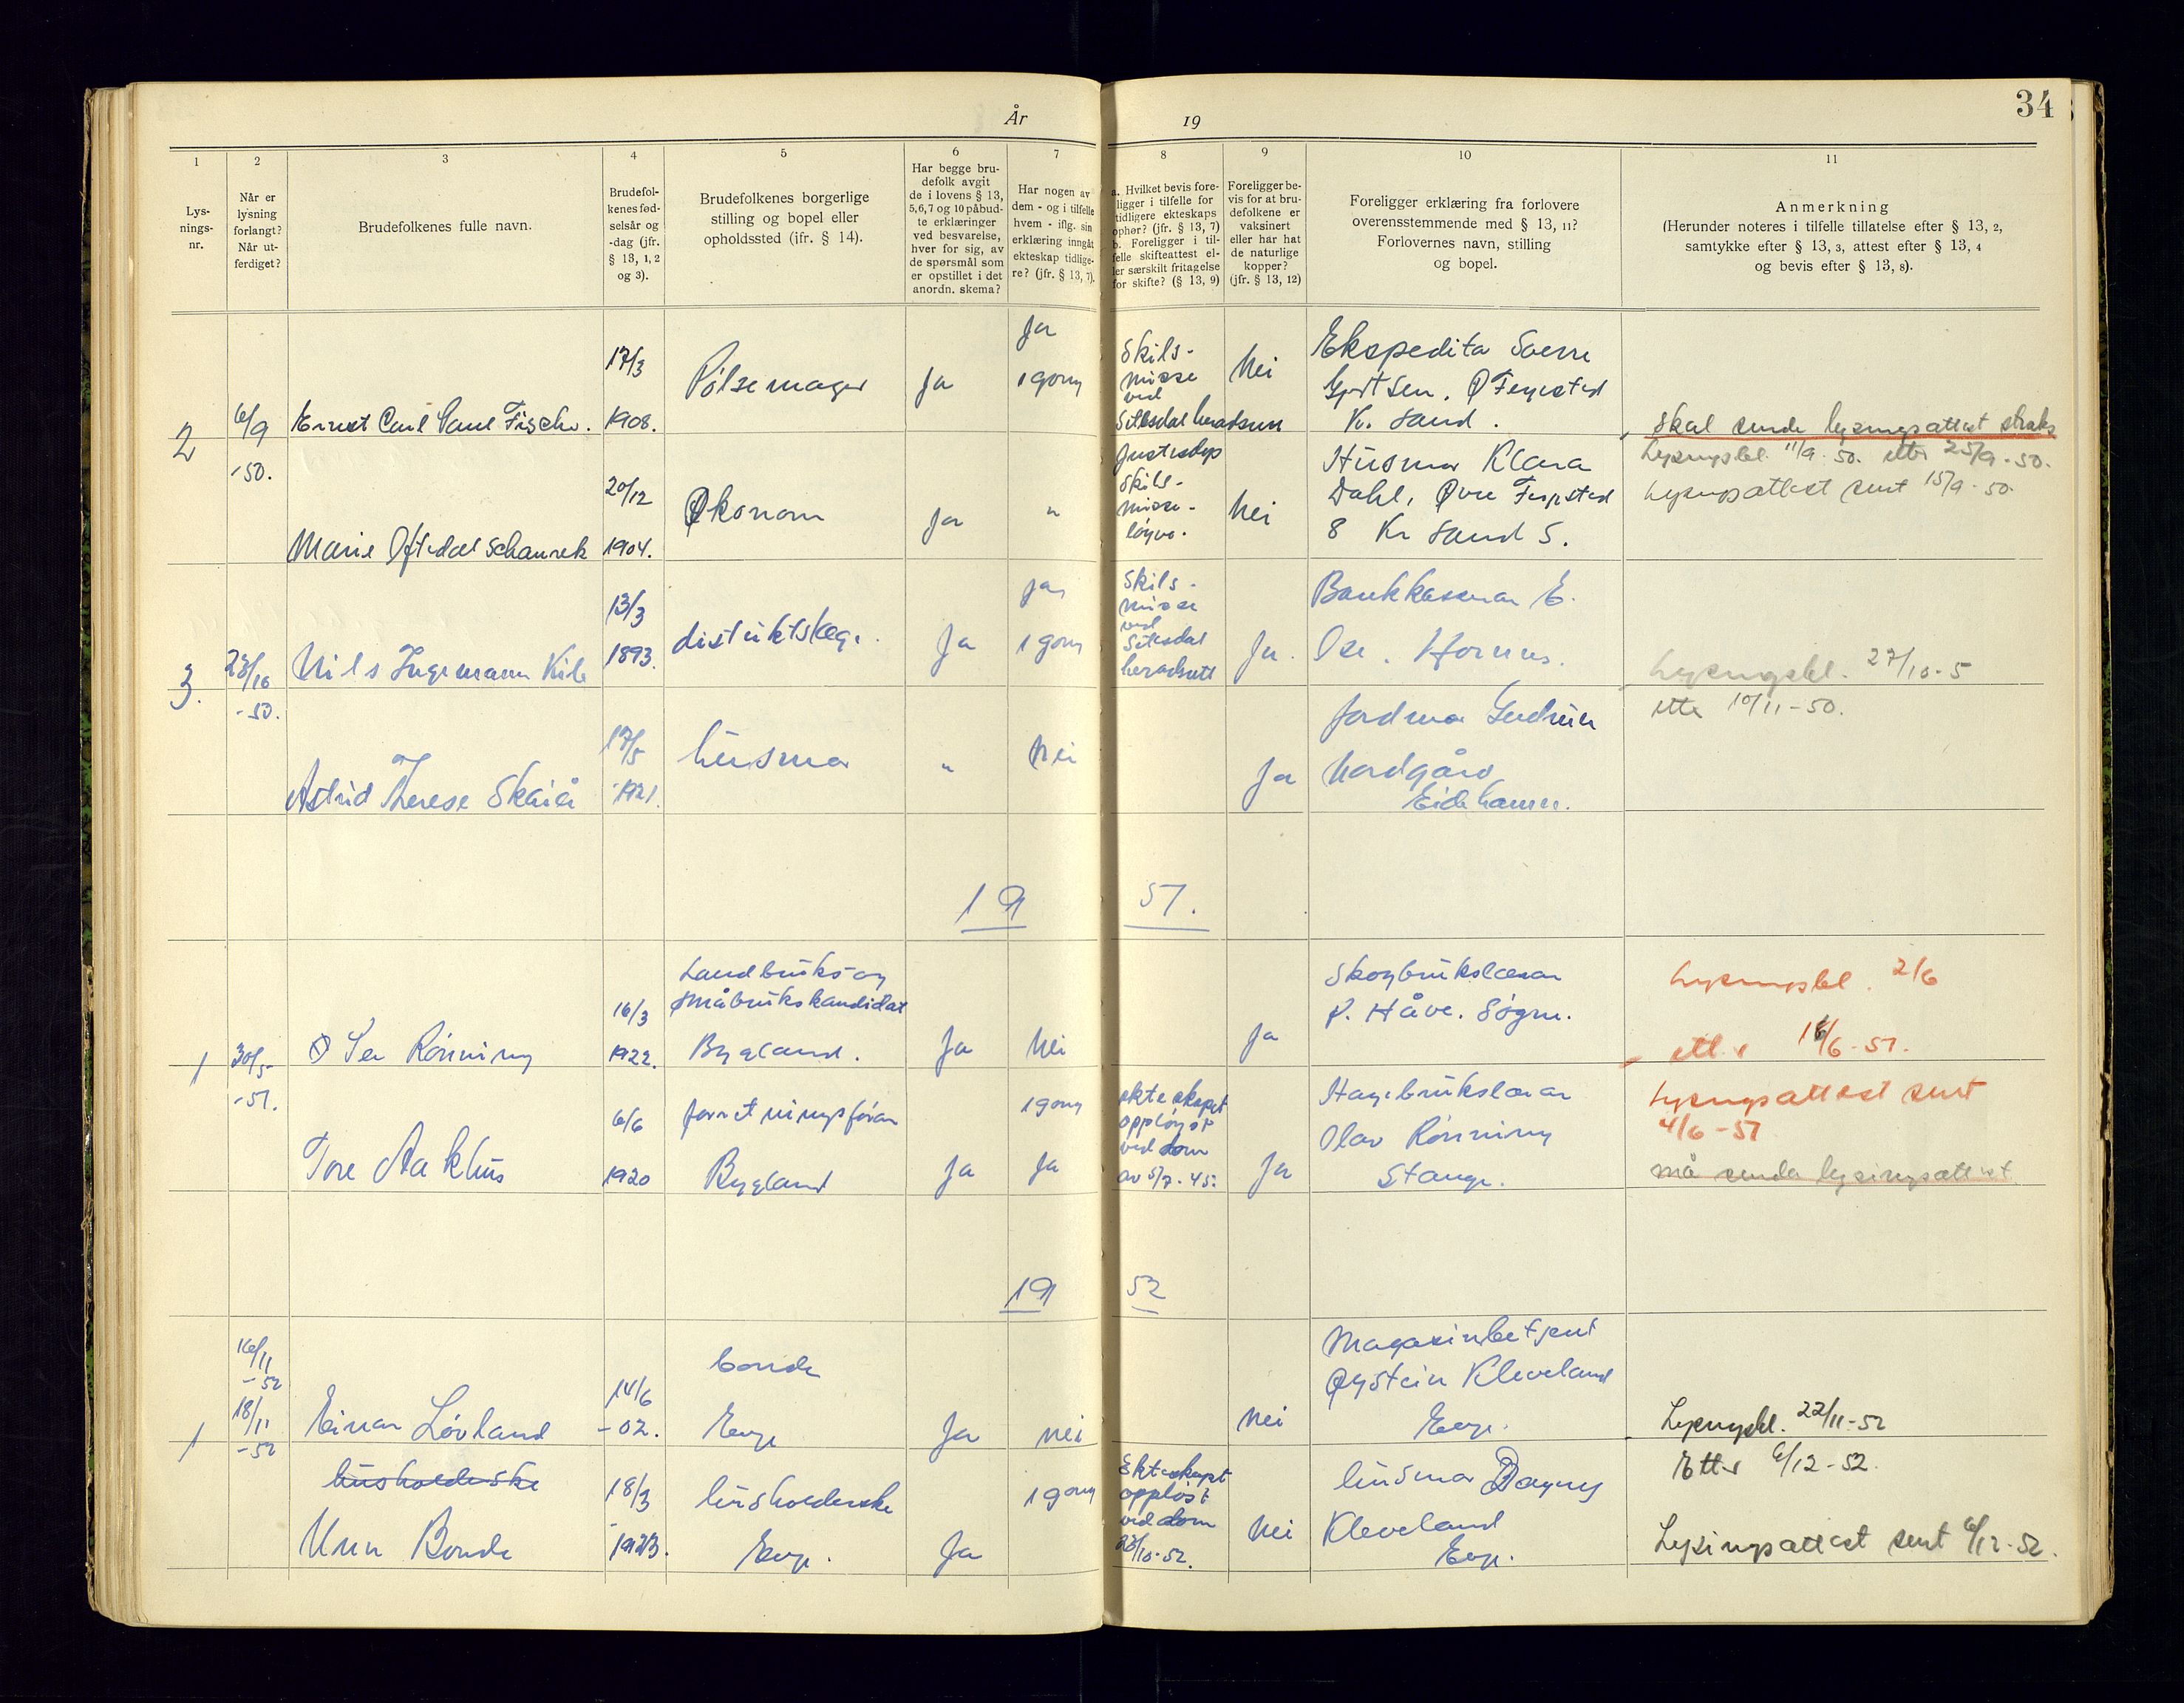 År 19
34
1
Lys-
nings-
nr.
2
Når er
lysning
forlangt?
Når ut-
ferdiget?
3
Brudefolkenes fulle navn.
4
Brudefol-
kenes fød-
selsår og
-dag (jfr.
§ 13, 1, 2
og 3).
5
Brudefolkenes borgerlige
stilling og bopel eller
opholdssted (ifr. § 14).
6
Har begge bru-
defolk avgit
de i lovens § 13,
5,6,7 og 10 påbud-
te erklæringer
ved besvarelse,
hver for sig, av
de spørsmål som
er opstillet i det
anordn. skema?
7
Har nogen av
dem - og i tilfelle
hvem - iflg. sin
erklæring inngåt
ekteskap tidlige-
re? (jfr. § 13, 7).
8
a. Hvilket bevis fore-
ligger i tilfelle for
tidligere ekteskaps
ophør? (jfr. § 13, 7)
b. Foreligger i til-
felle skifteattest el-
ler særskilt fritagelse
for skifte? (§ 13, 9)
9
Foreligger be-
vis for at bru-
defolkene er
vaksinert
eller har hat
de naturlige
kopper?
(jfr. § 13, 12)
10
Foreligger erklæring fra forlovere
overensstemmende med § 13, 11?
Forlovernes navn, stilling
og bopel.
11
Anmerkning
(Herunder noteres i tilfelle tillatelse efter § 13, 2,
samtykke efter § 13, 3, attest efter § 13, 4
og bevis efter § 13, 8).
2
6/9
-50.
Ernst Carl Paul Fischer.
17/3
1908.
Pølsemager
Ja
Ja
1 gong
Skils-
misse
ved
Setesdal heradsrett
Nei
Kr. Sand.
Skal sende lysingsattest straks
Lysingsbl. 11/9-50. etter 25/9-50.
Lysingsattest sent 15/9-50.
Marie Oftedal
20/12
1904.
Økonom
Ja
"
Skils-
misse-
løyve.
Nei
Husmor Klara
Dahl, Øvre
8 Kr Sand S.
3.
23/10
-50.
Nils Ingemann Kile
13/3
1893.
distriktslege.
Ja
Ja
1 gong
Skils-
misse
ved
Setesdal
heradsrett
Ja.
Bankkasserar E.
Ose. Hornnes.
Lysingsbl. 27/10-5
etter 10/11-50.
Astrid Therese Skaiå
17/5
1921.
husmor
"
Nei
Ja
Jordmor Gudrun
Nordgård
Eidehamn.
19 51.
1
30/5
-51.
Rønning
16/3
1922.
Landbruks- og
småbrukskandidat
Bygland.
Ja
Nei
Ja
Skogbrukslærar
P. Håve. Søgne.
Lysingsbl. 2/6
etter 18/6-51.
Tore Aakhus
6/6
1920
forretningsførar
Bygland
Ja
1 gong
Ja
ekteskapet
oppløyst
ved dom
av 5/7-45.
Ja
Hagebrukslærar
Olav Rønning
Stange.
Lysingsattest sent
4/6-51
må sende lysingsattest
19 52
1
16/11
-52
18/11
-52
Einar Løvland
14/6
-02.
bonde
Evje
Ja
nei
Nei
Magasinbetjent
Øystein Kleveland
Evje.
Lysingsbl. 22/11-52
Etter 6/12-52.
husholderske
Unn Bonde
18/3
1923.
husholderske
Evje.
Ja
1 gong
Ekteskapet
oppløst
ved dom
/10-52.
Nei
husmor Dagny
Kleveland
Evje.
Lysingsattest sent 6/12-52.